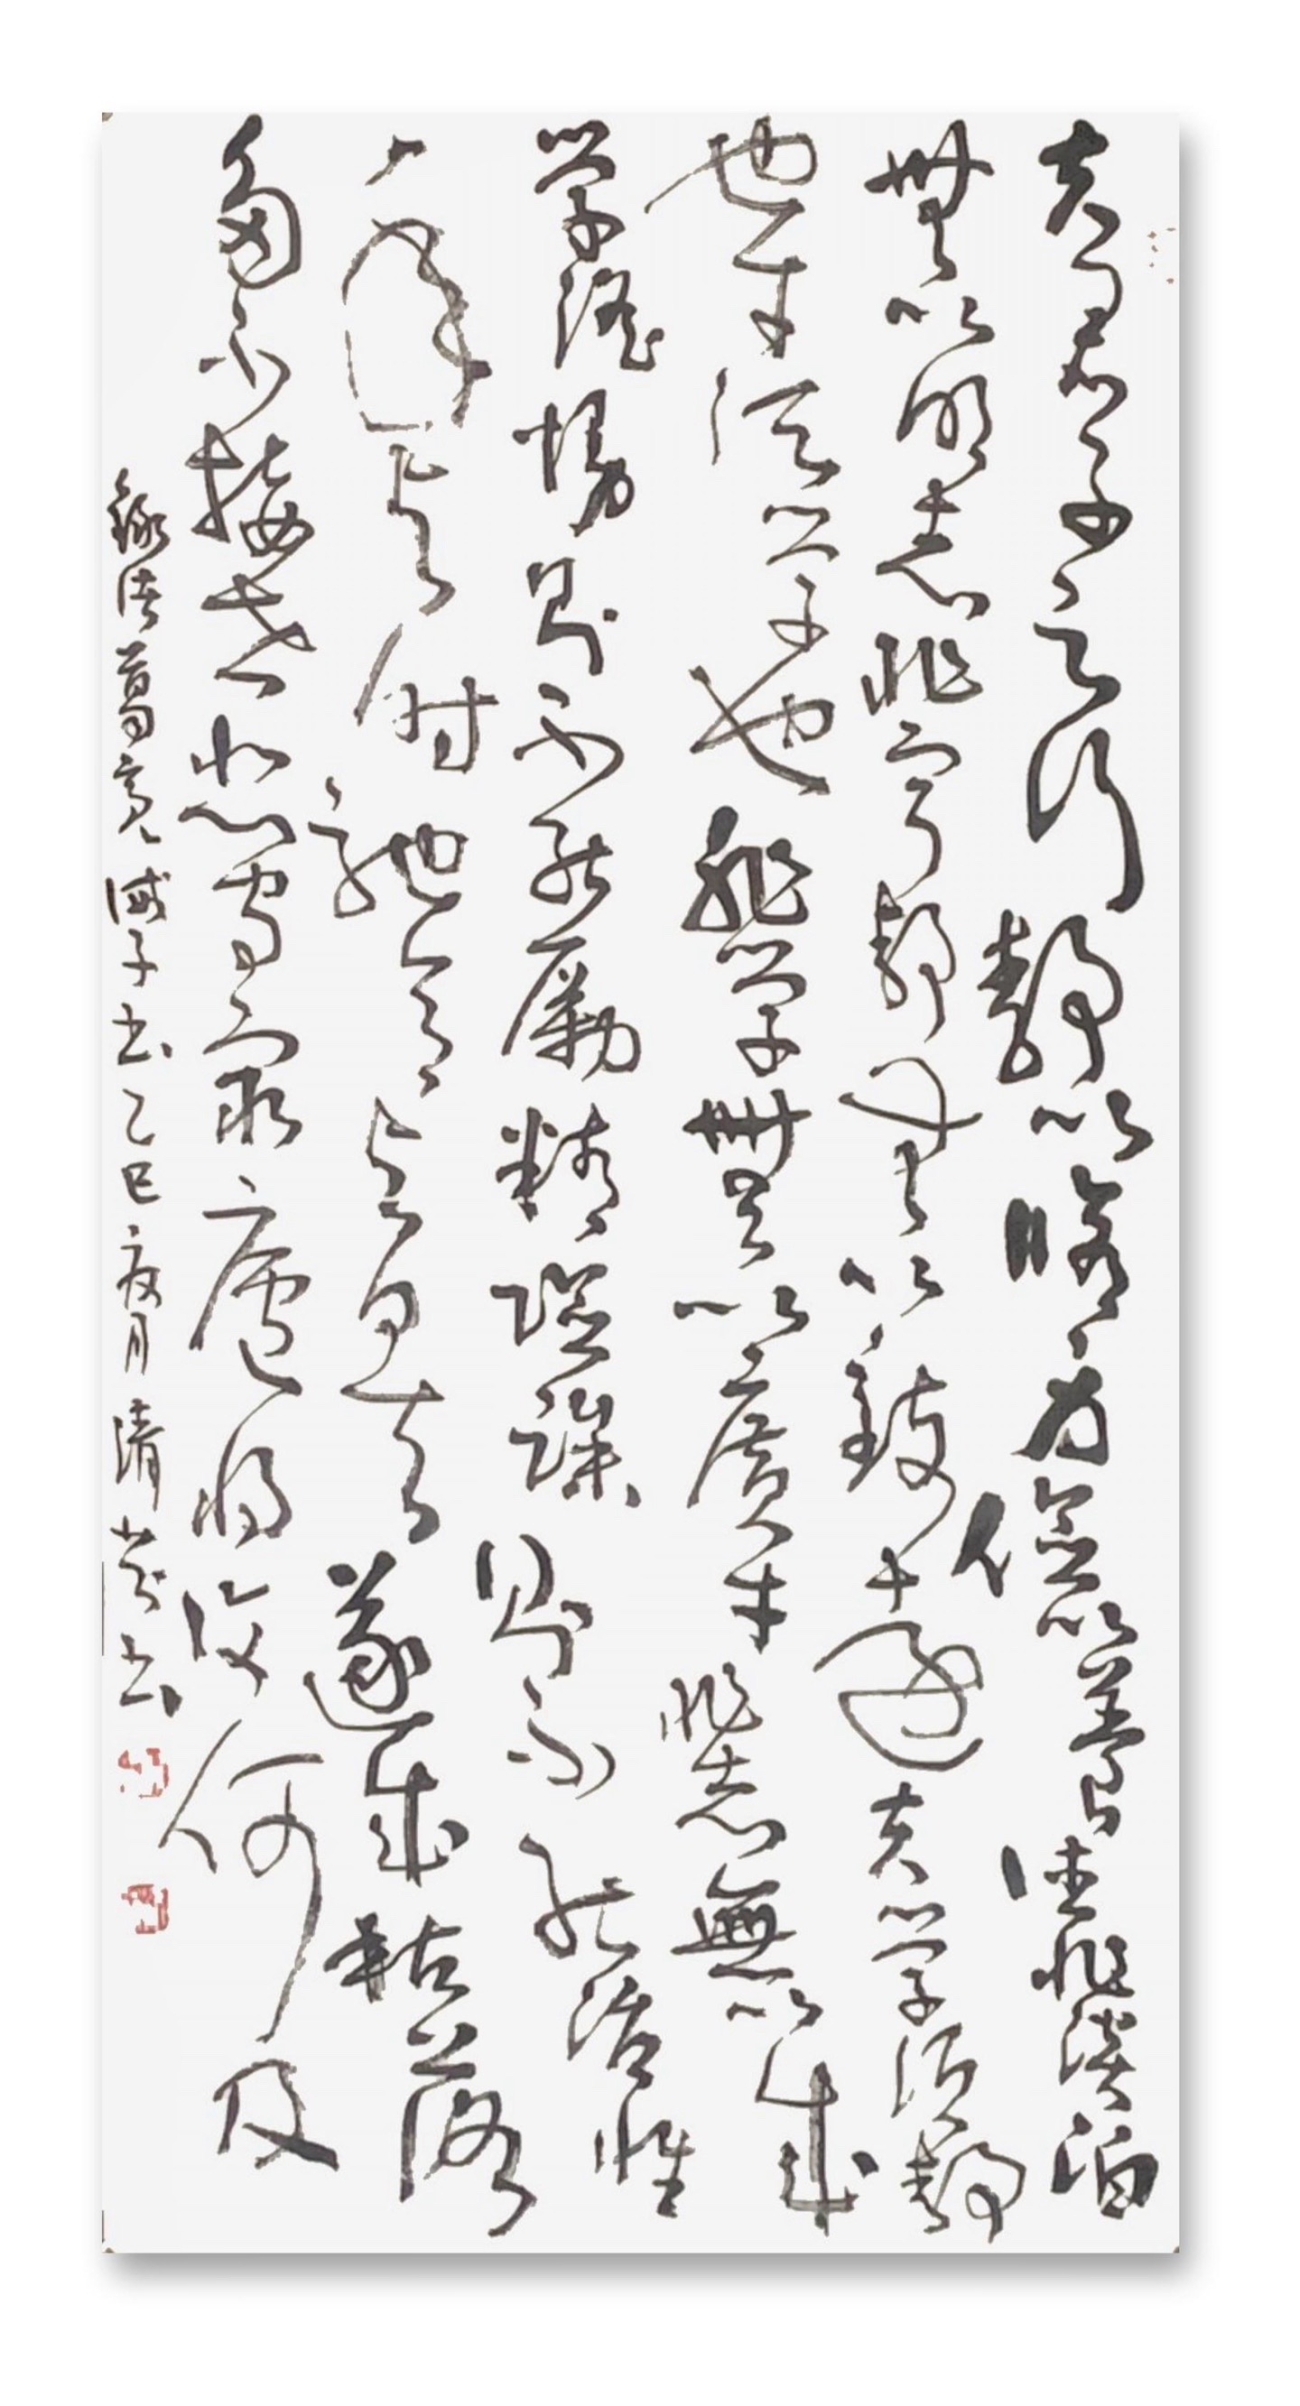 夫君子之行靜以脩身儉以養德非淡泊
無以明志非寧靜無以致遠夫學須靜
也才須學也非學無以廣才非志無以成
學淫慢則不能勵精險躁則不能治性
年與時馳意與日去遂成枯落
多不接世悲守窮廬將復何及
錄諸葛亮誡子書乙巳夏月清芬書